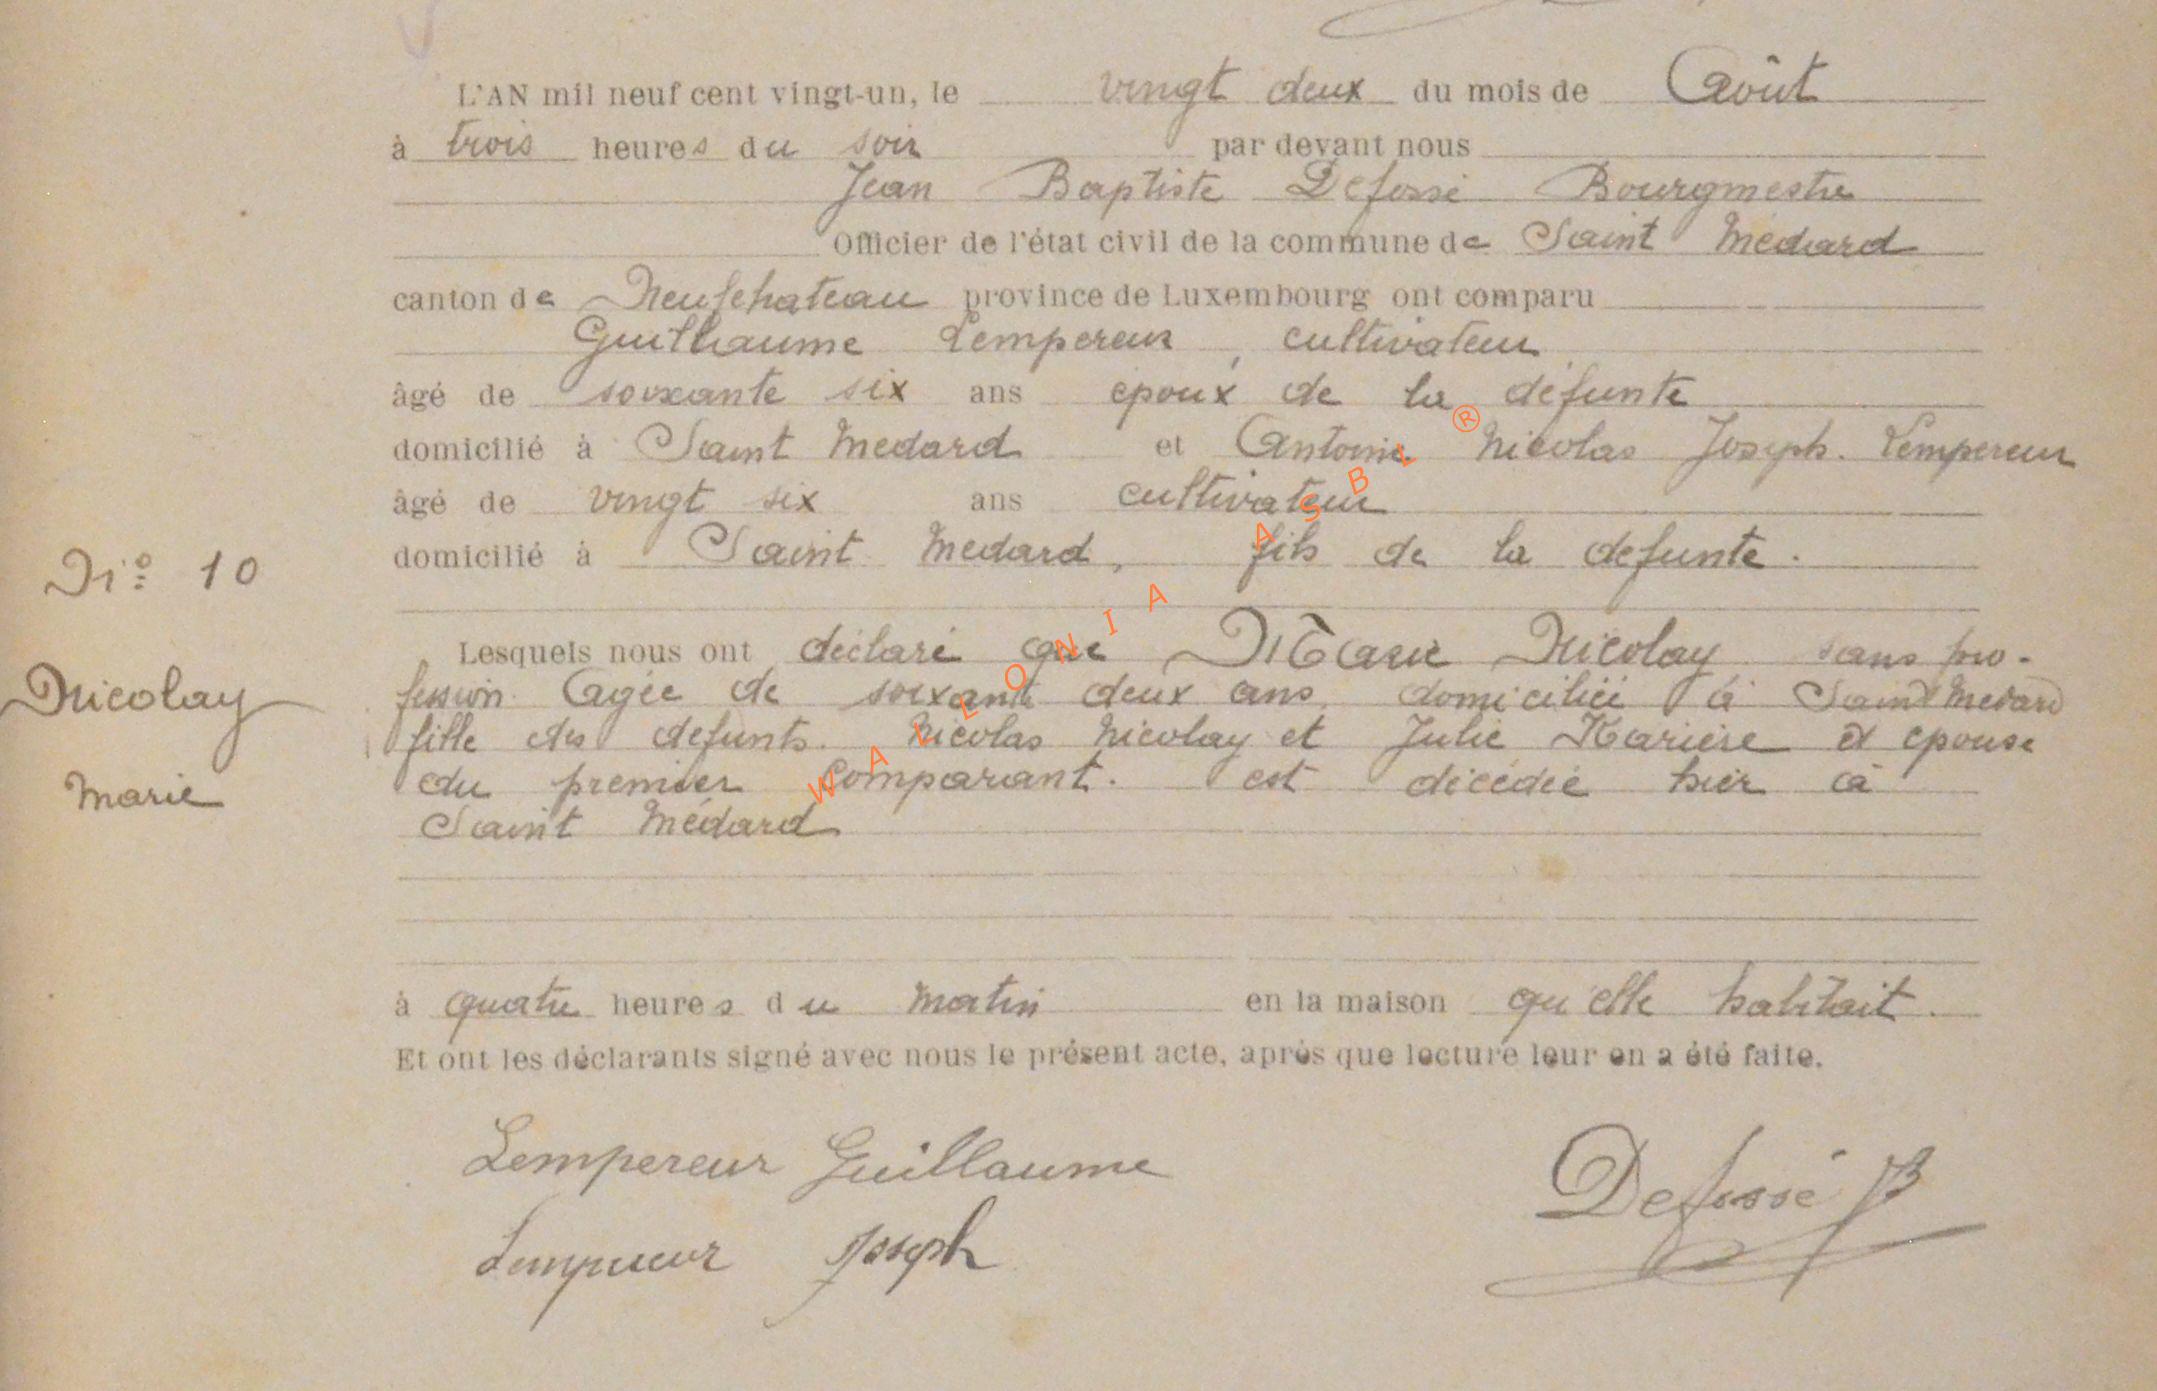 L'AN mil neuf cent vingt-un, le vingt deux du mois de Août
à trois heures du soir par devant nous
Jean Baptiste Defossé Bourgmestre
Officier de l'état civil de la commune de Saint Médard
canton de Neufchateau province de Luxembourg ont comparu
Guillaume Lempereur, cultivateur
âgé de soixante six ans époux de la défunte
domicilié à Saint Medard et Antoine Nicolas Joseph. Lempereur
âgé de vingt six ans cultivateur
domicilié à Saint Medard, fils de la defunte.
N° 10
Lesquels nous ont déclaré que Marie Nicolay sans pro-
Nicolay
fession Agée de soixante deux ans domiciliée à Saint Medard
fille des defunts. Nicolas Nicolay et Julie et epouse
Marie
du premier Comparant. est décédée hier à
Saint Médard
à quatre heures du matin en la maison qu'elle habitait.
Et ont les déclarants signé avec nous le présent acte, après que lecture leur en a été faite.
Lempereur Guillaume
Defossé JB
Lempereur Joseph
WALLONIA ASBL ®